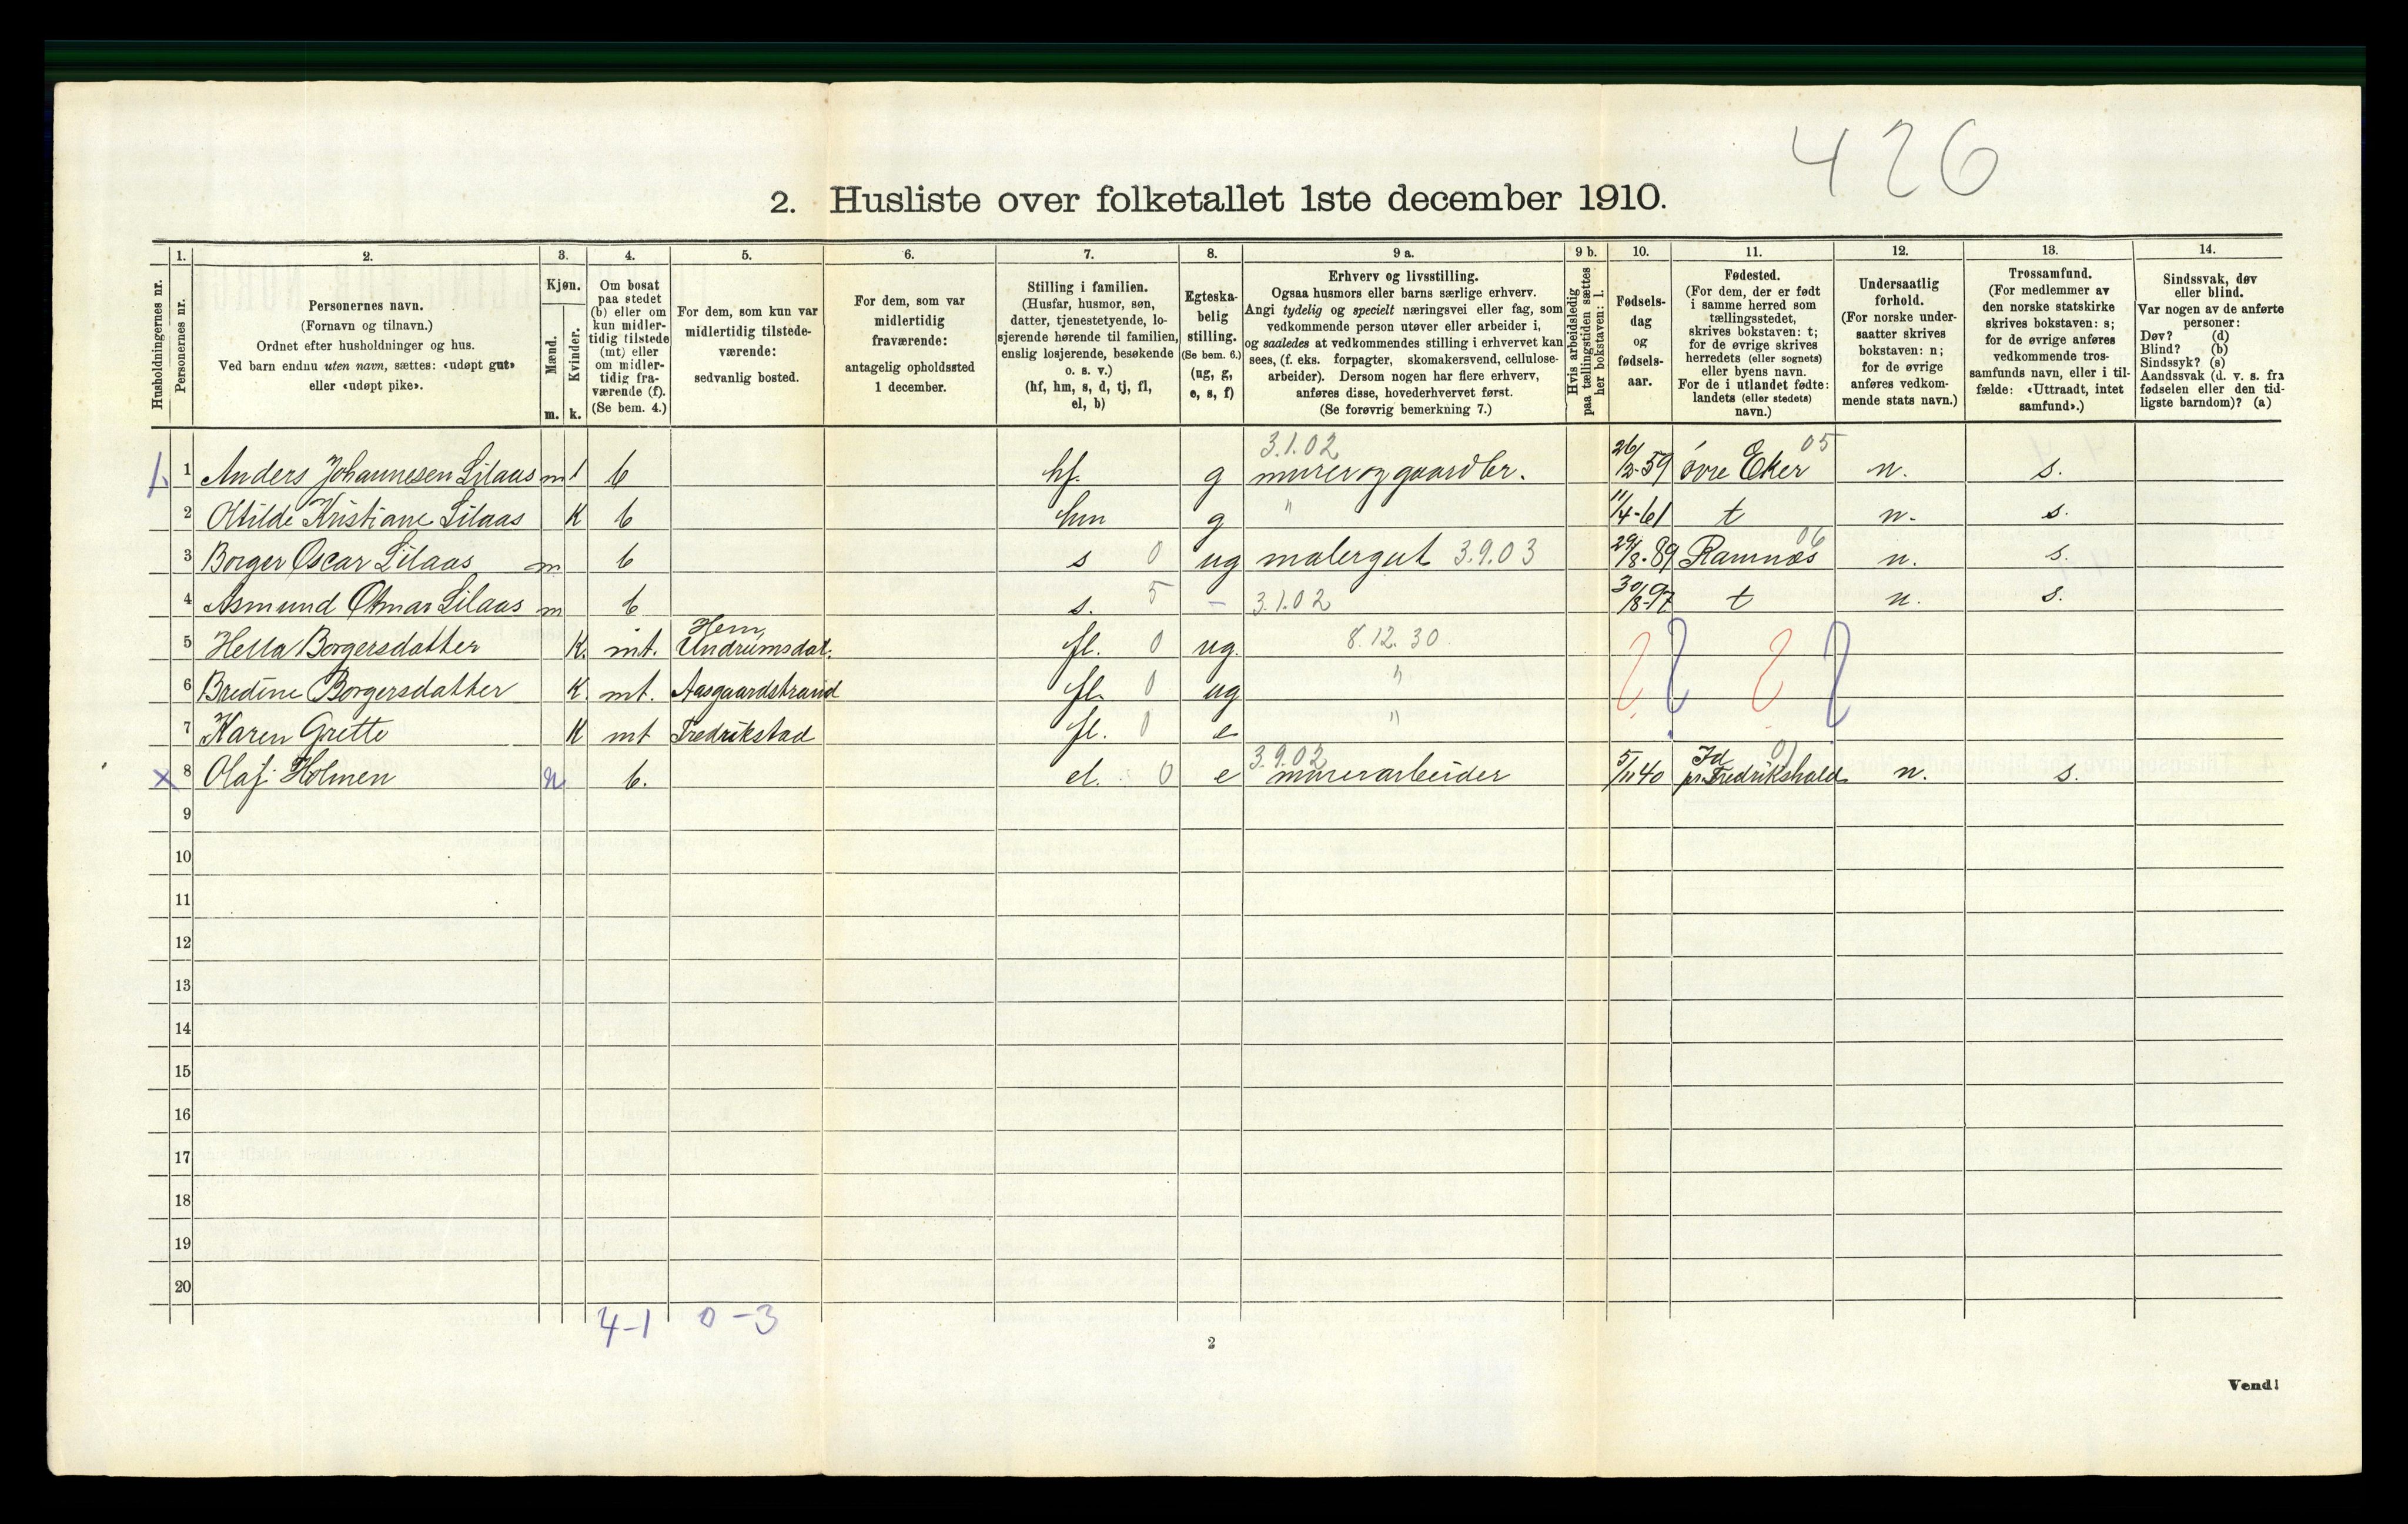 426
2. Husliste over folketallet 1ste december 1910.
Husholdningernes nr.
1.
Personernes nr.
2.
Personernes navn.
(Fornavn og tilnavn.)
Ordnet efter husholdninger og hus.
Ved barn endnu uten navn, sættes: «udøpt gut»
eller «udøpt pike».
3.
Kjøn.
Mænd.
Kvinder.
m. k.
4.
Om bosat
paa stedet
(b) eller om
kun midler-
tidig tilstede
(mt) eller
om midler-
tidig fra-
værende (f).
(Se bem. 4.)
5.
For dem, som kun var
midlertidig tilstede-
værende:
sedvanlig bosted.
6.
For dem, som var
midlertidig
fraværende:
antagelig opholdssted
1 december.
7.
Stilling i familien.
(Husfar, husmor, søn,
datter, tjenestetyende, lo-
sjerende hørende til familien,
enslig losjerende, besøkende
o. s. v.)
(hf, hm, s, d, tj, fl,
el, b)
8.
Egteska-
belig
stilling.
(Se bem. 6.)
(ug, g,
e, s, f)
9 a.
Erhverv og livsstilling.
Ogsaa husmors eller barns særlige erhverv.
Angi tydelig og specielt næringsvei eller fag, som
vedkommende person utøver eller arbeider i,
og saaledes at vedkommendes stilling i erhvervet kan
sees, (f. eks. forpagter, skomakersvend, cellulose-
arbeider). Dersom nogen har flere erhverv,
anføres disse, hovederhvervet først.
(Se forøvrig bemerkning 7.)
9 b.
Hvis arbeidsledig
paa tællingstiden sættes
her bokstaven: l.
10.
Fødsels-
dag
og
fødsels-
aar.
11.
Fødested.
(For dem, der er født
i samme herred som
tællingsstedet,
skrives bokstaven: t;
for de øvrige skrives
herredets (eller sognets)
eller byens navn.
For de i utlandet fødte:
landets (eller stedets)
navn.)
12.
Undersaatlig
forhold.
(For norske under-
saatter skrives
bokstaven: n;
for de øvrige
anføres vedkom-
mende stats navn.)
13.
Trossamfund.
(For medlemmer av
den norske statskirke
skrives bokstaven: s;
for de øvrige anføres
vedkommende tros-
samfunds navn, eller i til-
fælde: «Uttraadt, intet
samfund».)
14.
Sindssvak, døv
eller blind.
Var nogen av de anførte
personer:
Døv? (d)
Blind? (b)
Sindssyk? (s)
Aandssvak (d. v. s. fra
fødselen eller den tid-
ligste barndom)? (a)
3.1.02 05
1. 1 Anders Johannesen Lilaas m 1 b hf. g murer og gaardbr. 26/12-59 øvre Eker n. s.
2 Otilde Kristiane Lilaas K b hm g " 11/4-61 t n. s.
06
3 Borger Oscar Lilaas m b s 0 ug malergut 3.9.03 29/8-89 Ramnæs n. s.
4 Asmund Otmar Lilaas m b s. 5 – 3.1.02 30/8-97 t n. s.
Hem,
5 Hella Borgersdatter K. mt. Undrumsdal. fl. 0 ug. 8.12.30 ? ? ? ?
6 Bredine Borgersdatter K. mt. Aasgaardstrand fl. 0 ug "
7 Karen Grette K mt Fredrikstad fl. 0 e "
3.9.02 Id 01
x 8 Olaf Holmen m b. el. 0 e murerarbeider 5/11 40 pr. Fredrikshald n. s.
9
10
11
12
13
14
15
16
17
18
19
20
4-1 0-3
2
Vend!